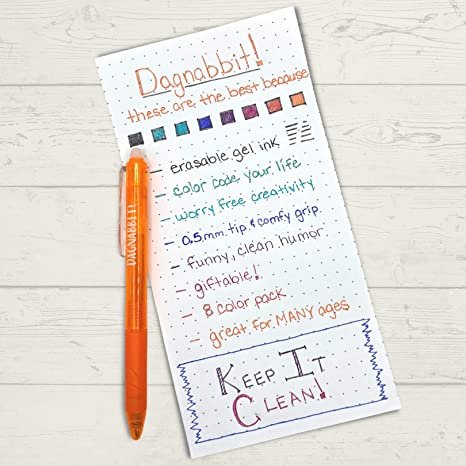 Dagnabbit!
these are the best because
- erasable gel ink
- color code your life
- worry free creativity
- 0.5mm tip & comfy grip
- funny, clean humor
- giftable!
- 8 color pack
- great for MANY ages
KEEP IT
CLEAN!
DAGNABBIT!